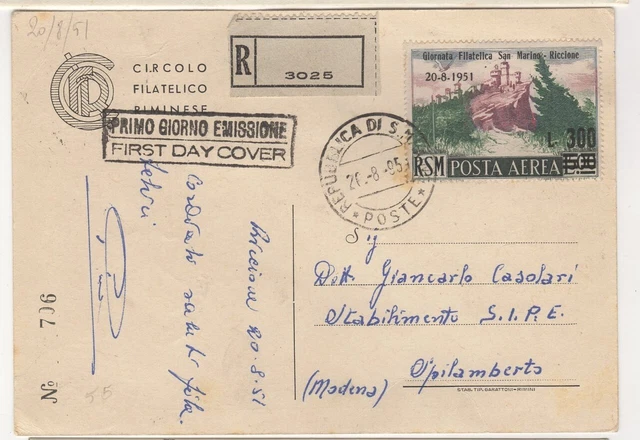 20/8/51
CIRCOLO
FILATELICO
RIMINESE
R
3025
Giornata Filatelica San Marino - Riccione
20-8-1951
L. 300
RSM POSTA AEREA
PRIMO GIORNO EMISSIONE
FIRST DAY COVER
REPUBBLICA DI S.
POSTE
Riccione 20.8.51
Cordiali saluti fila-
telici
Nº 706
Dott. Giancarlo Casolari
Stabilimento S.I.P.E.
Spilamberto
(Modena)
STAB. TIP. GARATTONI - RIMINI